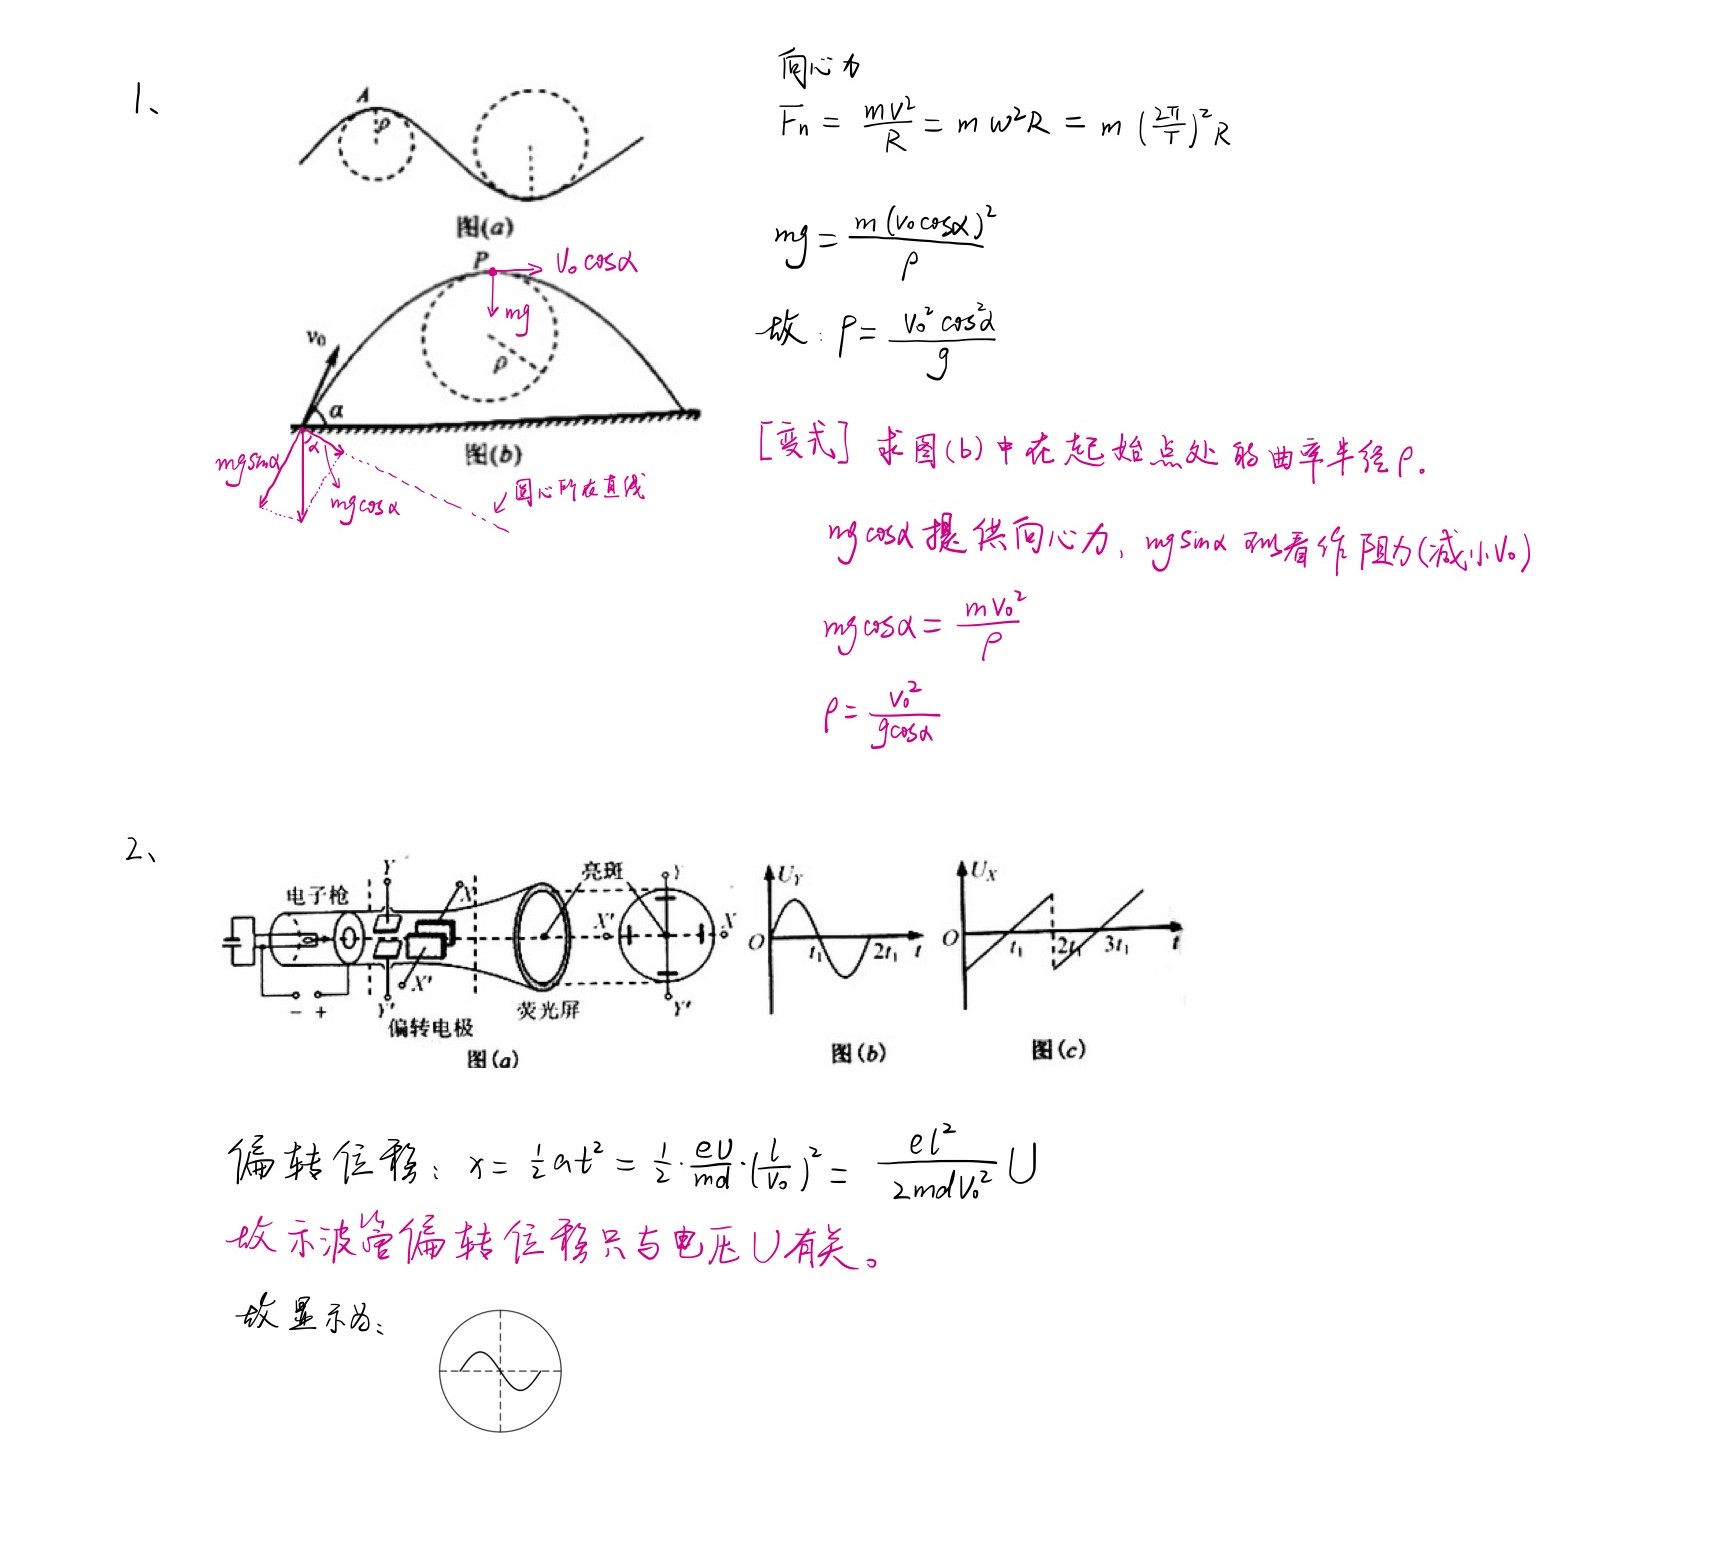 1、
A
ρ
图(a)
向心力
Fn = mv²/R = mω²R = m(2π/T)²R
P
v₀cosα
mg
v₀
ρ
α
图(b)
mgsinα
α
mgcosα
圆心所在直线
mg = m(v₀cosα)²/ρ
故：ρ = v₀²cos²α/g
[变式] 求图(b)中在起始点处的曲率半径ρ.
mgcosα提供向心力, mgsinα 可看作阻力(减小v₀)
mgcosα = mv₀²/ρ
ρ = v₀²/gcosα
2、
电子枪
Y
X
亮斑
Y
X'
X
Y'
X'
Y'
- +
偏转电极
荧光屏
图(a)
U_Y
O
t₁
2t₁
t
图(b)
U_X
O
t₁
2t₁
3t₁
t
图(c)
偏转位移：x = ½at² = ½·eU/md·(l/v₀)² = el²/2mdv₀² U
故示波管偏转位移只与电压U有关。
故显示为：